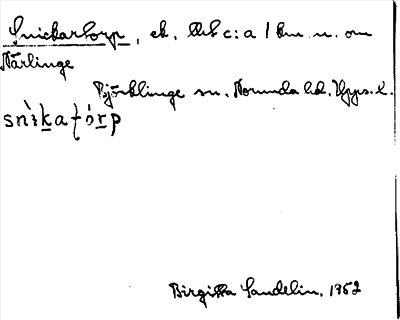 Snickartorp, ek. Ark c:a 1 km n. om
Närlinge
Björklinge sn. Norunda hd. Upps. l.
Birgitta Sandelin, 1952